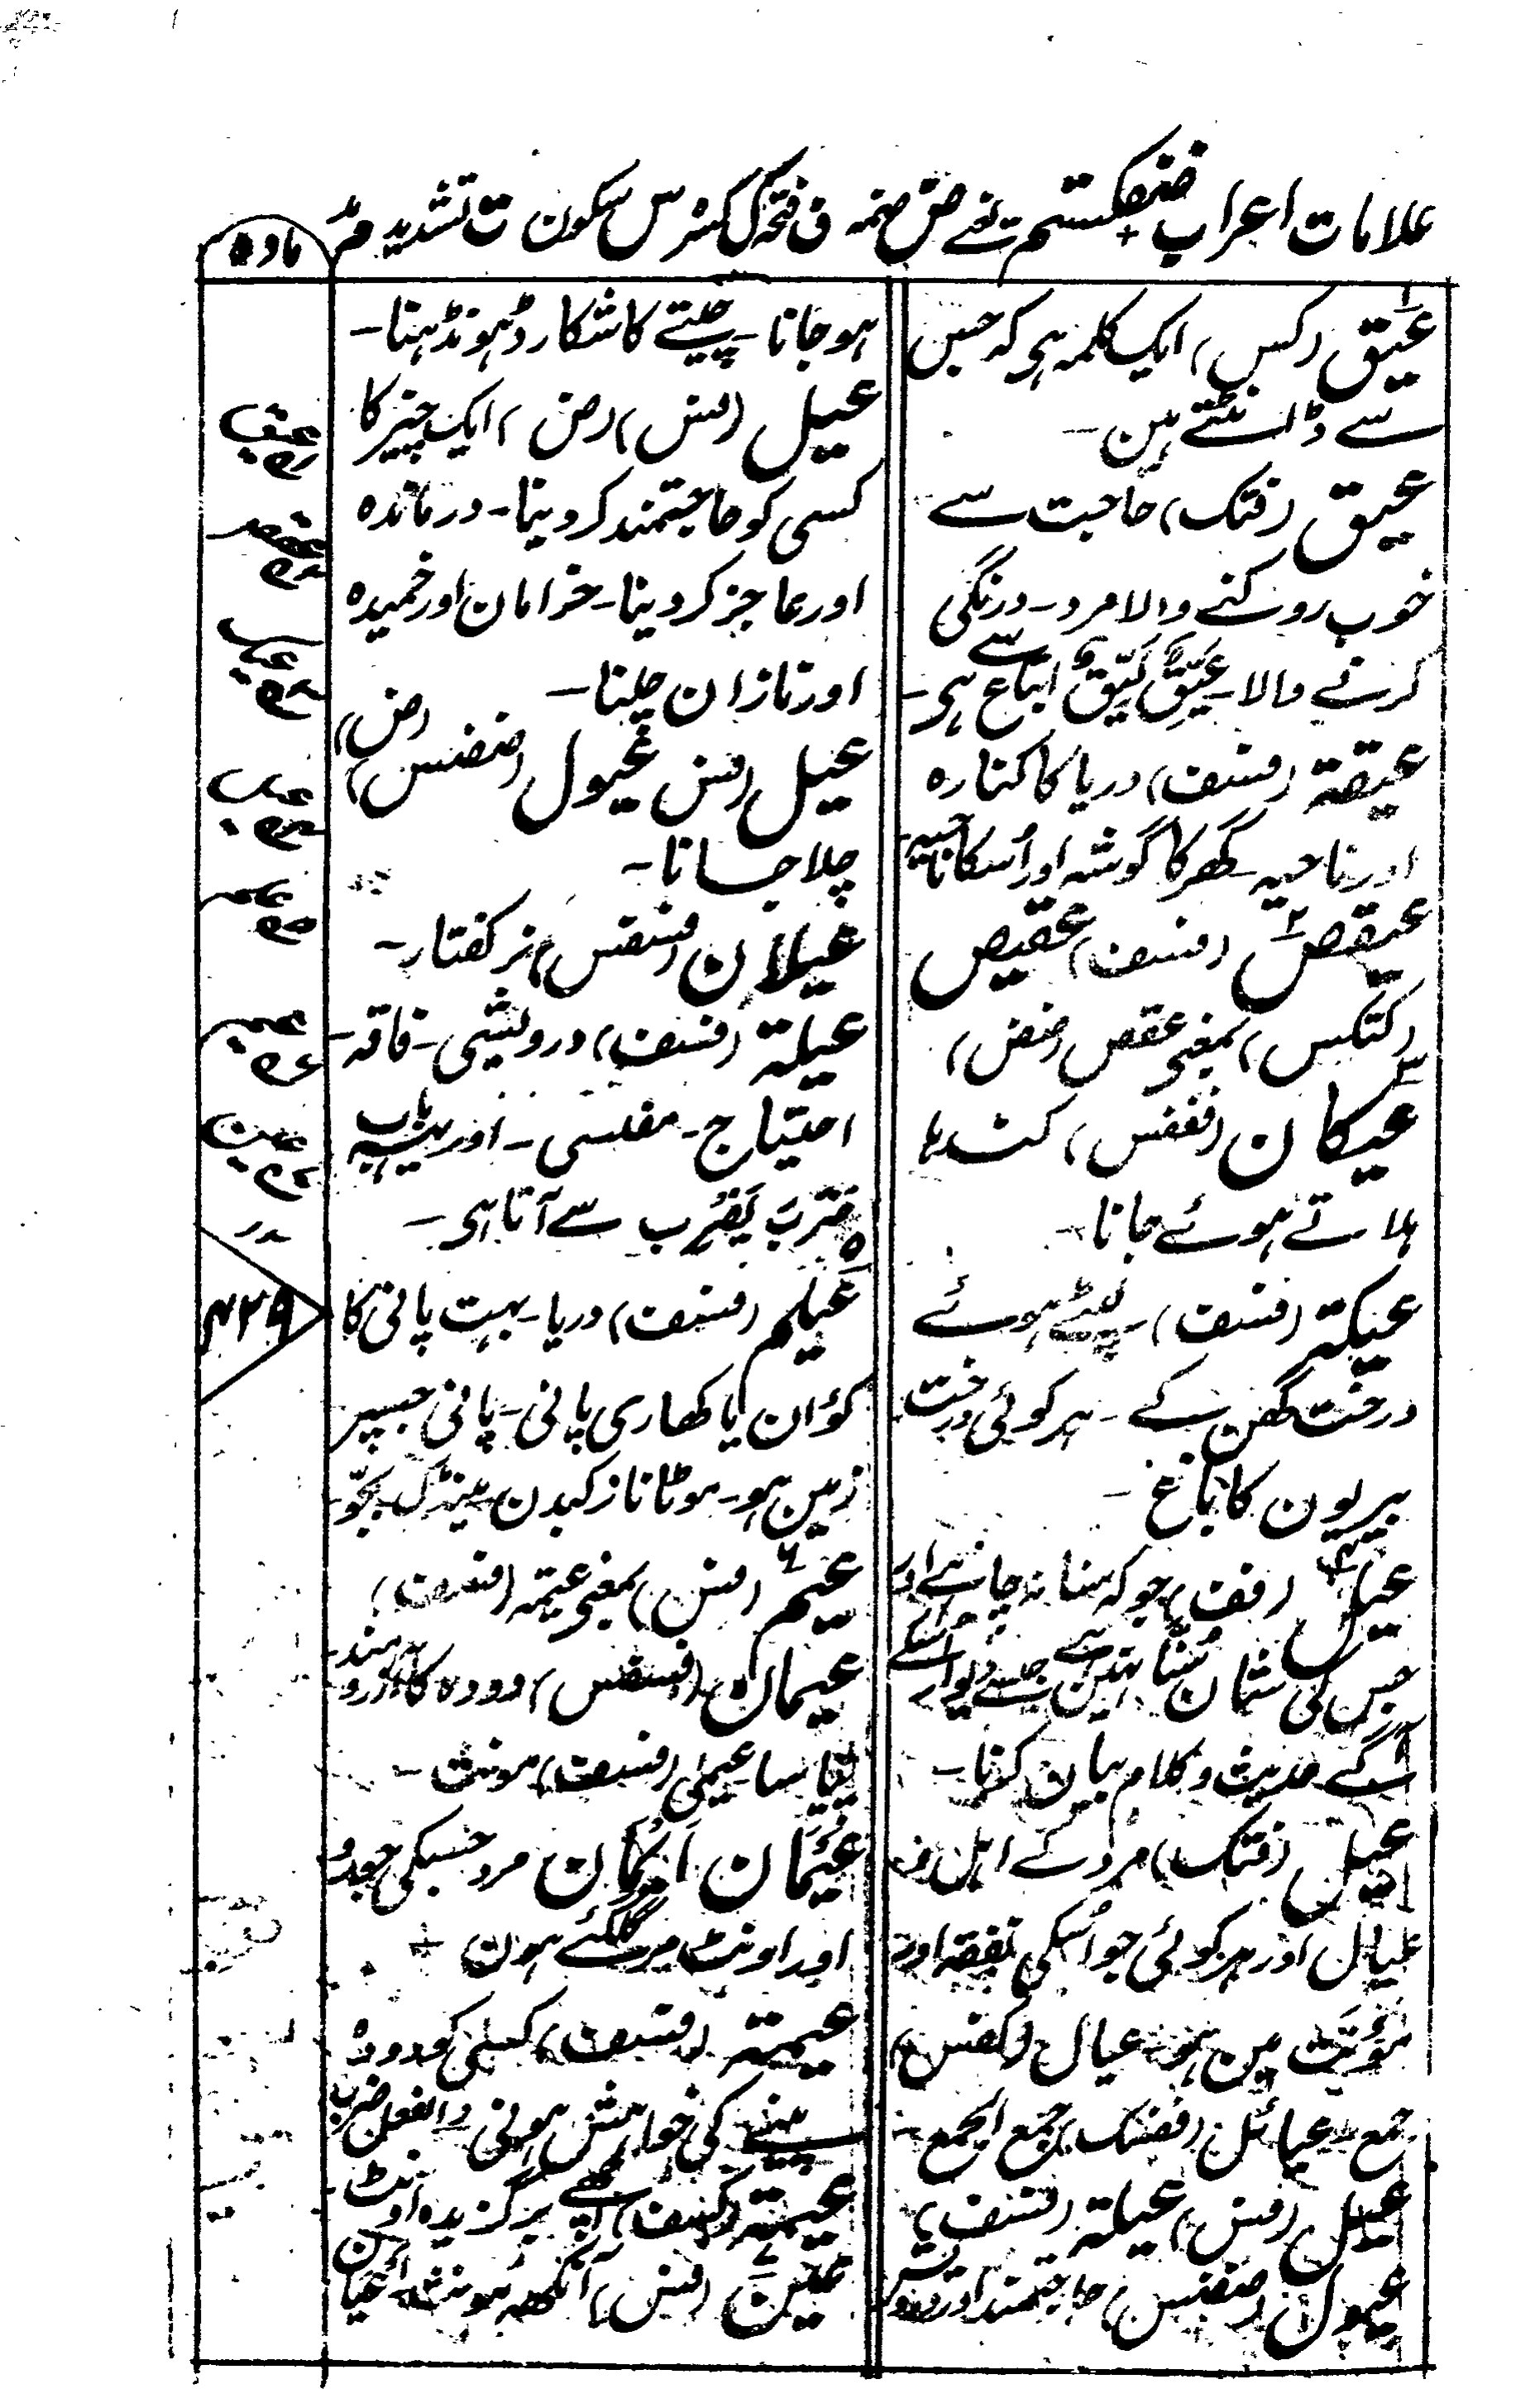 علامات اعراب ضفکستم تھے ض ضمہ ف فتحہ ک کسرہ س سکون ت تشدید م مد
مادہ
عیق (کس) ایک کلمہ ہی کہ جس
سے ڈانٹتے ہین ۔
عیق (فتک) حاجت سے
خوب روکنے والا مرد ۔ درنگی
کرنے والا ۔ عَیِّقٌ لَیِّقٌ اتباع سے ہی ۔
عیقة (فسف) دریا کا کنارہ
اور ناحیہ ۔ گھر کا گوشہ اور اُسکا ناحیہ
عیقص (فسف) عقیص
(کتکس) بمعنی عقص (ضفض)
عیکان (ففس) کندہا
ہلاتے ہوئے جانا ۔
عیکة (فسف) لپٹے ہوئے
درخت گھن کے ۔ ہر کوئی درخت
بیریون کا باغ ۔
عیل (فف) جو کہ سنا نہ چاہے اور
جس کی شان سُننا نہین ہے جیسے دیوار اسکے
آگے حدیث و کلام بیان کرنا ۔
عیل (فتک) مرد کے اہل و
عیال اور ہر کوئی جو اُسکی نفقہ اور
مؤنت مین ہو عیال (کفس)
جمع ۔ عیائل (ففک) جمع الجمع ۔
عیل (فس) عیلة (فسف)
عیول (ضفس) حاجتمند اور درویش
ہو جانا ۔ چیتے کا شکار ڈہونڈہنا ۔
عیل (فس) (ض) ایک چیز کا
کسی کو حاجتمند کر دینا ۔ درماندہ
اور عاجز کر دینا ۔ خرامان اور خمیدہ
اور نازان چلنا ۔
عیل (فس) عیول (ضفس) (ض)
چلا جانا ۔
عیلان (فسفس) نر کفتار ۔
عیلة (فسف) درویشی ۔ فاقہ ۔
احتیاج ۔ مفلسی ۔ اور یہہ باب
ضَرَبَ یَضْرِب سے آتا ہی ۔
عیلم (فسف) دریا ۔ بہت پانی کا
کوان یا کھاری پانی ۔ پانی جسپر
زمین ہو ۔ موٹا نازکبدن مینڈک بجّو ۔
عیم (فس) بمعنی عیمة (فسف)
عیمان (فسفس) دودہ کا آرزومند
پیاسا عیمی (فسف) مونث ۔
عَیْمَان اَیْمَان مرد جسکی جورو
اور اونٹ مر گئے ہون
عیمة (فسف) کسی کو دودہ
پینے کی خواہش ہونی والفعل ضرب
عیمة (کسف) اچھے برگزیدہ اونٹ
عین (فس) آنکھہ مونث اعیان
عیق
عیک
عیل
عیلم
عیم
عین